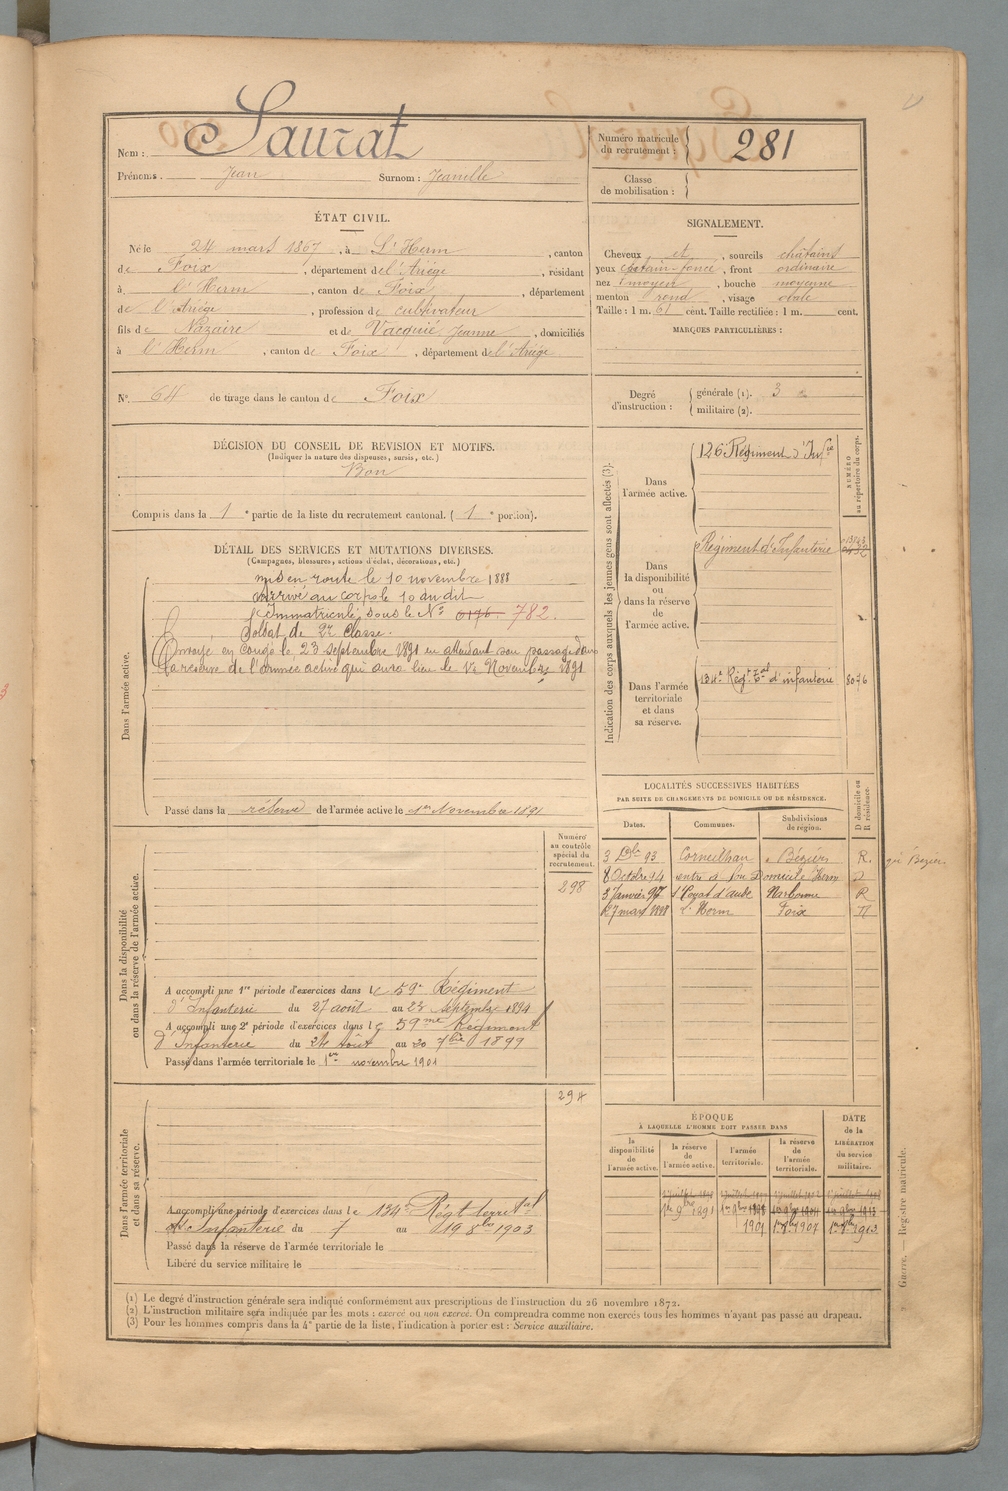 Nom : Saurat
Prénoms. Jean Surnom : Jeanelle
Numéro matricule du recrutement : 281
Classe de mobilisation :
ÉTAT CIVIL.
Né le 24 mars 1867, à L'Herm, canton
de Foix, département de l'Ariège, résidant
à l'Herm, canton de Foix, département
de l'Ariège, profession de cultivateur
fils de Nazaire et de Vacquié Jeanne, domiciliés
à l'Herm, canton de Foix, département de l'Ariège.
SIGNALEMENT.
Cheveux et, sourcils châtains
yeux châtain-foncé, front ordinaire
nez moyen, bouche moyenne
menton rond, visage ovale
Taille : 1 m. 61 cent. Taille rectifiée : 1 m. cent.
MARQUES PARTICULIÈRES :
N° 64 de tirage dans le canton de Foix
Degré d'instruction : générale (1). 3
militaire (2).
DÉCISION DU CONSEIL DE REVISION ET MOTIFS.
(Indiquer la nature des dispenses, sursis, etc.)
Bon
Compris dans la 1e partie de la liste du recrutement cantonal. (1e portion).
DÉTAIL DES SERVICES ET MUTATIONS DIVERSES.
(Campagnes, blessures, actions d'éclat, décorations, etc.)
Dans l'armée active.
mis en route le 10 novembre 1888
Arrivé au corps le 10 du dit
Immatriculé sous le N° 0176. 782.
Soldat de 2e Classe.
Envoyé en congé le 23 septembre 1891 en attendant son passage dans
la réserve de l'armée active qui aura lieu le 1er Novembre 1891
Passé dans la réserve de l'armée active le 1er Novembre 1891
Indication des corps auxquels les jeunes gens sont affectés (3).
NUMÉRO au répertoire du corps.
Dans l'armée active.
126e Régiment d'Infie
Dans la disponibilité ou dans la réserve de l'armée active.
Régiment d'Infanterie
Dans l'armée territoriale et dans sa réserve.
134e Régt Tal d'infanterie 8076
LOCALITÉS SUCCESSIVES HABITÉES
PAR SUITE DE CHANGEMENTS DE DOMICILE OU DE RÉSIDENCE.
Dates. Communes. Subdivisions de région. D domicile ou R résidence.
3 Dbre 93 Corneilhan Béziers R.
8 Octobre 94 rentre à son Domicile Herm D
3 Janvier 97 Narbonne R
27 mars 1898 l'Herm Foix D
Dans la disponibilité ou dans la réserve de l'armée active.
Numéro au contrôle spécial du recrutement.
298
A accompli une 1re période d'exercices dans le 59e Régiment
d'Infanterie du 27 août au 23 septembre 1894
A accompli une 2e période d'exercices dans le 59me Régiment
d'Infanterie du 24 Août au 20 7bre 1899
Passé dans l'armée territoriale le 1er novembre 1901
Dans l'armée territoriale et dans sa réserve.
294
A accompli une période d'exercices dans le 134e Régt territal
d'Infanterie du 7 au 19 8bre 1903
Passé dans la réserve de l'armée territoriale le
Libéré du service militaire le
ÉPOQUE
À LAQUELLE L'HOMME DOIT PASSER DANS
la disponibilité de l'armée active. la réserve de l'armée active. l'armée territoriale. la réserve de l'armée territoriale.
DATE de la LIBÉRATION du service militaire.
1er 9bre 1891
1901 1er 9bre 1907 1er 9bre 1913
(1) Le degré d'instruction générale sera indiqué conformément aux prescriptions de l'instruction du 26 novembre 1872.
(2) L'instruction militaire sera indiquée par les mots : exercé ou non exercé. On comprendra comme non exercés tous les hommes n'ayant pas passé au drapeau.
(3) Pour les hommes compris dans la 4e partie de la liste, l'indication à porter est : Service auxiliaire.
Guerre. — Registre matricule.